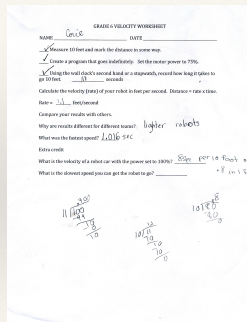 GRADE 6 VELOCITY WORKSHEET
NAME Corie DATE
✓ Measure 10 feet and mark the distance in some way.
✓ Create a program that goes indefinitely. Set the motor power to 75%.
✓ Using the wall clock's second hand or a stopwatch, record how long it takes to
go 10 feet. seconds
Calculate the velocity (rate) of your robot in feet per second. Distance = rate x time.
Rate = feet/second
Compare your results with others.
Why are results different for different teams? lighter robots
What was the fastest speed? 1.016 sec
Extra credit
What is the velocity of a robot car with the power set to 100%? per 10 foot
What is the slowest speed you can get the robot to go?